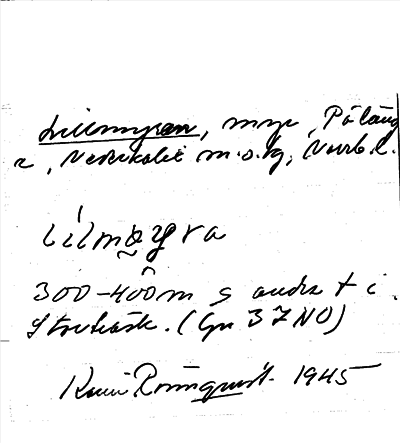 Lillmyran, myr, Påläng
n, Nederkalix m.o.hg, Norrb.l.
lílmøyra
300-400m s andra t i
(Gn 37NO)
Rönnqvist. 1945